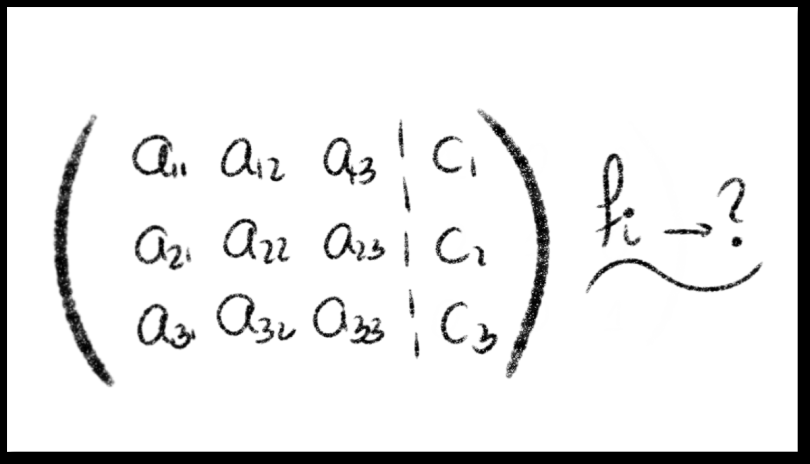 a₁₁ a₁₂ a₁₃ | c₁
a₂₁ a₂₂ a₂₃ | c₂ fᵢ → ?
a₃₁ a₃₂ a₃₃ | c₃